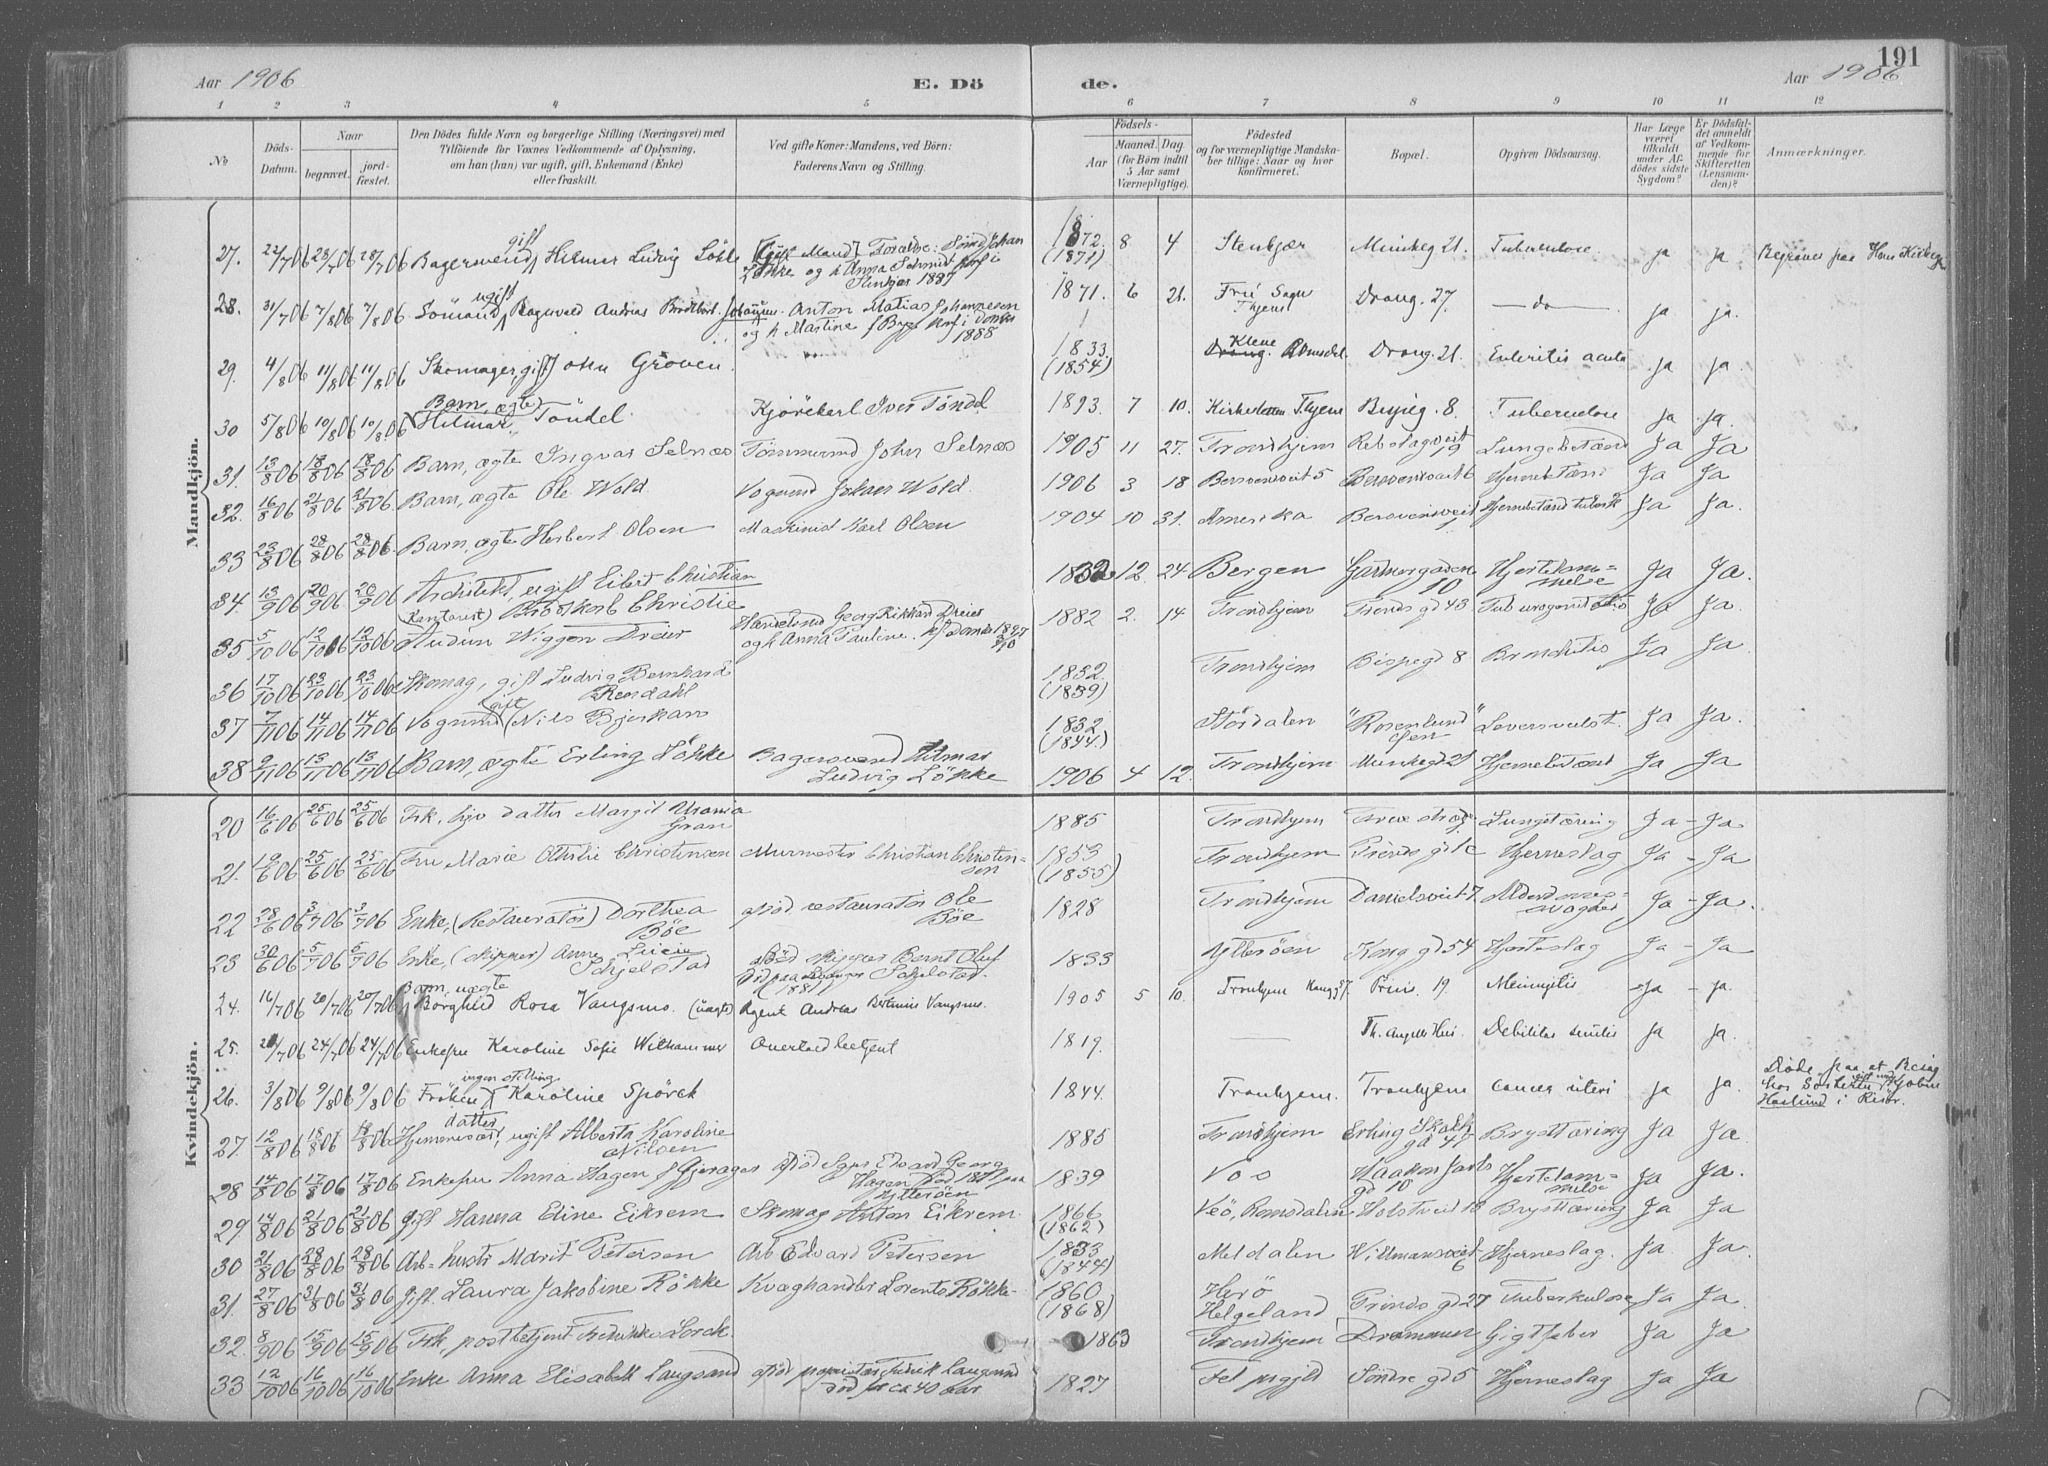 191
Aar 1906 E. Dö de. Aar 1906
1 2 3 4 5 6 7 8 9 10 11 12
No
Döds-Datum.
Naar
begravet.
jordfæstet.
Den Dödes fulde Navn og borgerlige Stilling (Næringsvei) med
Tilföiende for Voxnes Vedkommende af Oplysning,
om han (hun) var ugift, gift, Enkemand (Enke)
eller fraskilt.
Ved gifte Koner: Mandens, ved Börn:
Faderens Navn og Stilling.
Födsels-
Aar
Maaned. Dag.
(for Börn indtil
5 Aar samt
Værnepligtige).
Födested
og for værnepligtige Mandskaber tillige: Naar og hvor
konfirmeret.
Bopæl.
Opgiven Dödsaarsag.
Har Læge
været
tilkaldt
under Afdödes sidste
Sygdom?
Er Dödsfaldet anmeldt
af Vedkommende for
Skifteretten
(Lensmanden)?
Anmærkninger.
Mandkjön.
27. 22/7 06 28/7 06 28/7 06 Bagersvend gift Hilmar Ludvig Lökke 1872 (1871) 8 4 Stenkjær Munkeg 21. Tuberculose ja ja
28. 31/7 06 7/8 06 7/8 06 Sömand ugift Anton Matias Johannesen og h Martine 1888 1871. 6 21. Drong. 27. — do — ja ja.
29. 4/8 06 11/8 06 11/8 06 Skomager, gift John Gröven 1833. (1854) Romsdal. Drong. 21. Enteritis acuta ja ja.
30 5/8 06 10/8 06 10/8 06 Barn, ægte Hilmar Töndel Kjörekarl Iver Töndel 1893. 7 10. Bispeg. 8. Tuberculose ja ja.
31. 13/8 06 18/8 06 18/8 06 Barn, ægte Ingvar Selnæs Tömmermd John Selnæs 1905 11 27. Trondhjem Rebslagveit 19 Lungebetænd Ja Ja
32. 16/8 06 21/8 06 21/8 06 Barn, ægte Ole Wold Vognmd Johan Wold 1906 3 18 Bersvensveit 5 Bersvensveit 6 Hjernebetænd Ja Ja
33 23/8 06 28/8 06 28/8 06. Barn, ægte Herbert Olsen Maskinist Karl Olsen 1904 10 31. Amerika Bersvensveit 1 Hjernebetænd tuberk Ja Ja.
34. 13/9 06 20/9 06 20/9 06 Architekt, ugift Eilert Christian Brodtkorb Christie 1832 12 24 Bergen Gartnergaden 10 Hjertelammelse Ja Ja.
35 5/10 06 12/10 06 12/10 06 (Kontorist) Audun Wiggen Dreier Georg Rikhard Dreier og h Anna Pauline. 1882 2. 14 Trondhjem Prinds gd 43 Ja Ja.
36 17/10 06 23/10 06 23/10 06 Skomag, gift Ludvig Bernhard Rendahl 1832. (1859) Trondhjem Bispegd 8 Bronchitis Ja Ja
37 7/11 06 14/11 06 14/11 06 Vognmd (gift Nils Bjerkan 1832 (1844.) Stördalen "Rosenlund" Ja Ja.
38 9/11 06 13/11 06 13/11 06 Barn, ægte Erling Lökke Bagersvend Hilmar Ludvig Lökke 1906 4 12. Trondhjem Munkegd 21 Hjernebetænd Ja Ja
Kvindekjön.
20 16/6 06 25/6 06 25/6 06 Frk, hjv datter Margit Urania Gran 1885 Trondhjem Lungetæring Ja - Ja
21. 19/6 06 25/6 06 25/6 06 Fru Marie Othilie Christensen Murmester Christian Christensen 1853 (1855) Trondhjem Hjerneslag Ja - Ja
22 28/6 06 3/7 06 3/7 06 Enke, (Restauratör) Dorthea Böe afdöd restauratör Ole Böe 1828 Trondhjem Danielsveit 7 Alderdomssvaghed Ja - Ja.
23 30/6 06 5/7 06 5/7 06 Enke, (skipper) Anne Lucie Schjelstad afdöd skipper Bernt Oluf Schjelstad 1833 Ytteröen Kong gd 54 Hjerteslag Ja - Ja
24. 16/7 06 20/7 06 20/7 06 Barn, uægte Borghild Rosa Vangsmo. (uægte) Agent Andreas Vangsmo. 1905 5 10. Tronhjem Prins. 19 Meningitis Ja - ja.
25. 20/7 06 24/7 06 24/7 06 Enkefru Karoline Sofie Overtoldbetjent 1819. — Th. Angells Hus. Debilitas senilis ja ja.
26. 3/8 06 9/8 06 9/8 06 Fröken ingen stilling Karoline Spörck 1844. Tronhjem. Tronhjem Cancer uteri ja ja. Döde paa et Reise hos Söster gift med Haslund i Risör.
27. 12/8 06 18/8 06 18/8 06 datter, ugift Alberta Karoline Nilsen 1885 Trondhjem Erling Skakk gd 47 Brysttæring Ja Ja
28 14/8 06 17/8 06 17/8 06 Enkefru Anna Hagen f Gjerager Edvard Georg Hagen Ytteröen 1839 Vos Haakon Jarls gd 10 Hjertelammelse Ja Ja.
29 14/8 06 21/8 06 21/8 06 gift Hanna Eline Eikrem Skomag Anton Eikrem 1866 (1862) Veö, Romsdalen Holstveit 10 Brysttæring Ja Ja
30 21/8 06 28/8 06 28/8 06 Arb-hustr Marit Petersen Arb Edvard Petersen 1833 (1844) Meldalen Willmansveit Hjerneslag. Ja. Ja.
31. 27/8 06 31/8 06 31/8 06 gift. Laura Jakobine Rökke Kvæghandler Lorents Rökke 1860 (1868) Herö Helgeland Prinds gd 27 Tuberkulose Ja Ja.
32. 8/9 06 15/9 06 15/9 06 Frk, postbetjent Fredrikke Lorck. 1863 Trondhjem Drammen Gigtfeber Ja Ja
33 12/10 06 16/10 06 16/10 06 Enke Anna Elisabeth Langsand afdöd proprietær Fredrik Langsand död for ca 40 Aar 1827 Söndre gd 5 Hjerneslag Ja Ja